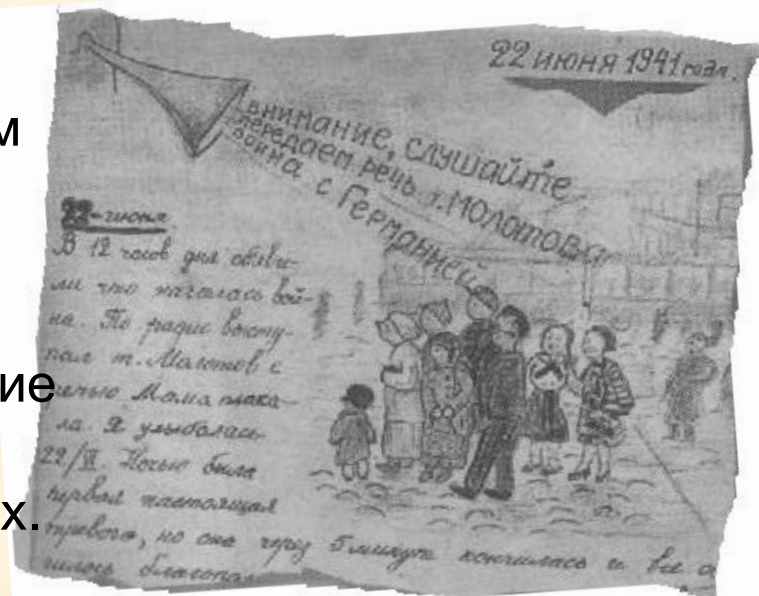 м
ие
х.
22 июня 1941 года.
внимание, слушайте
передаем речь т. Молотова
война с Германией
22-июня
В 12 часов дня объяви-
ли что началась вой-
на. По радио высту-
пал т. Молотов с
речью Мама плака-
ла. Я улыбалась
22/VI. Ночью была
первая настоящая
тревога, но она через 5 минут кончилась и все о